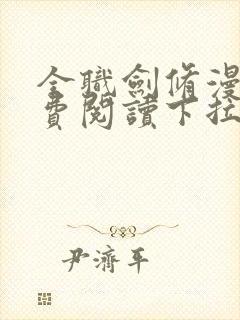 全職劍脩漫
費閱讀下拉
尹濟平